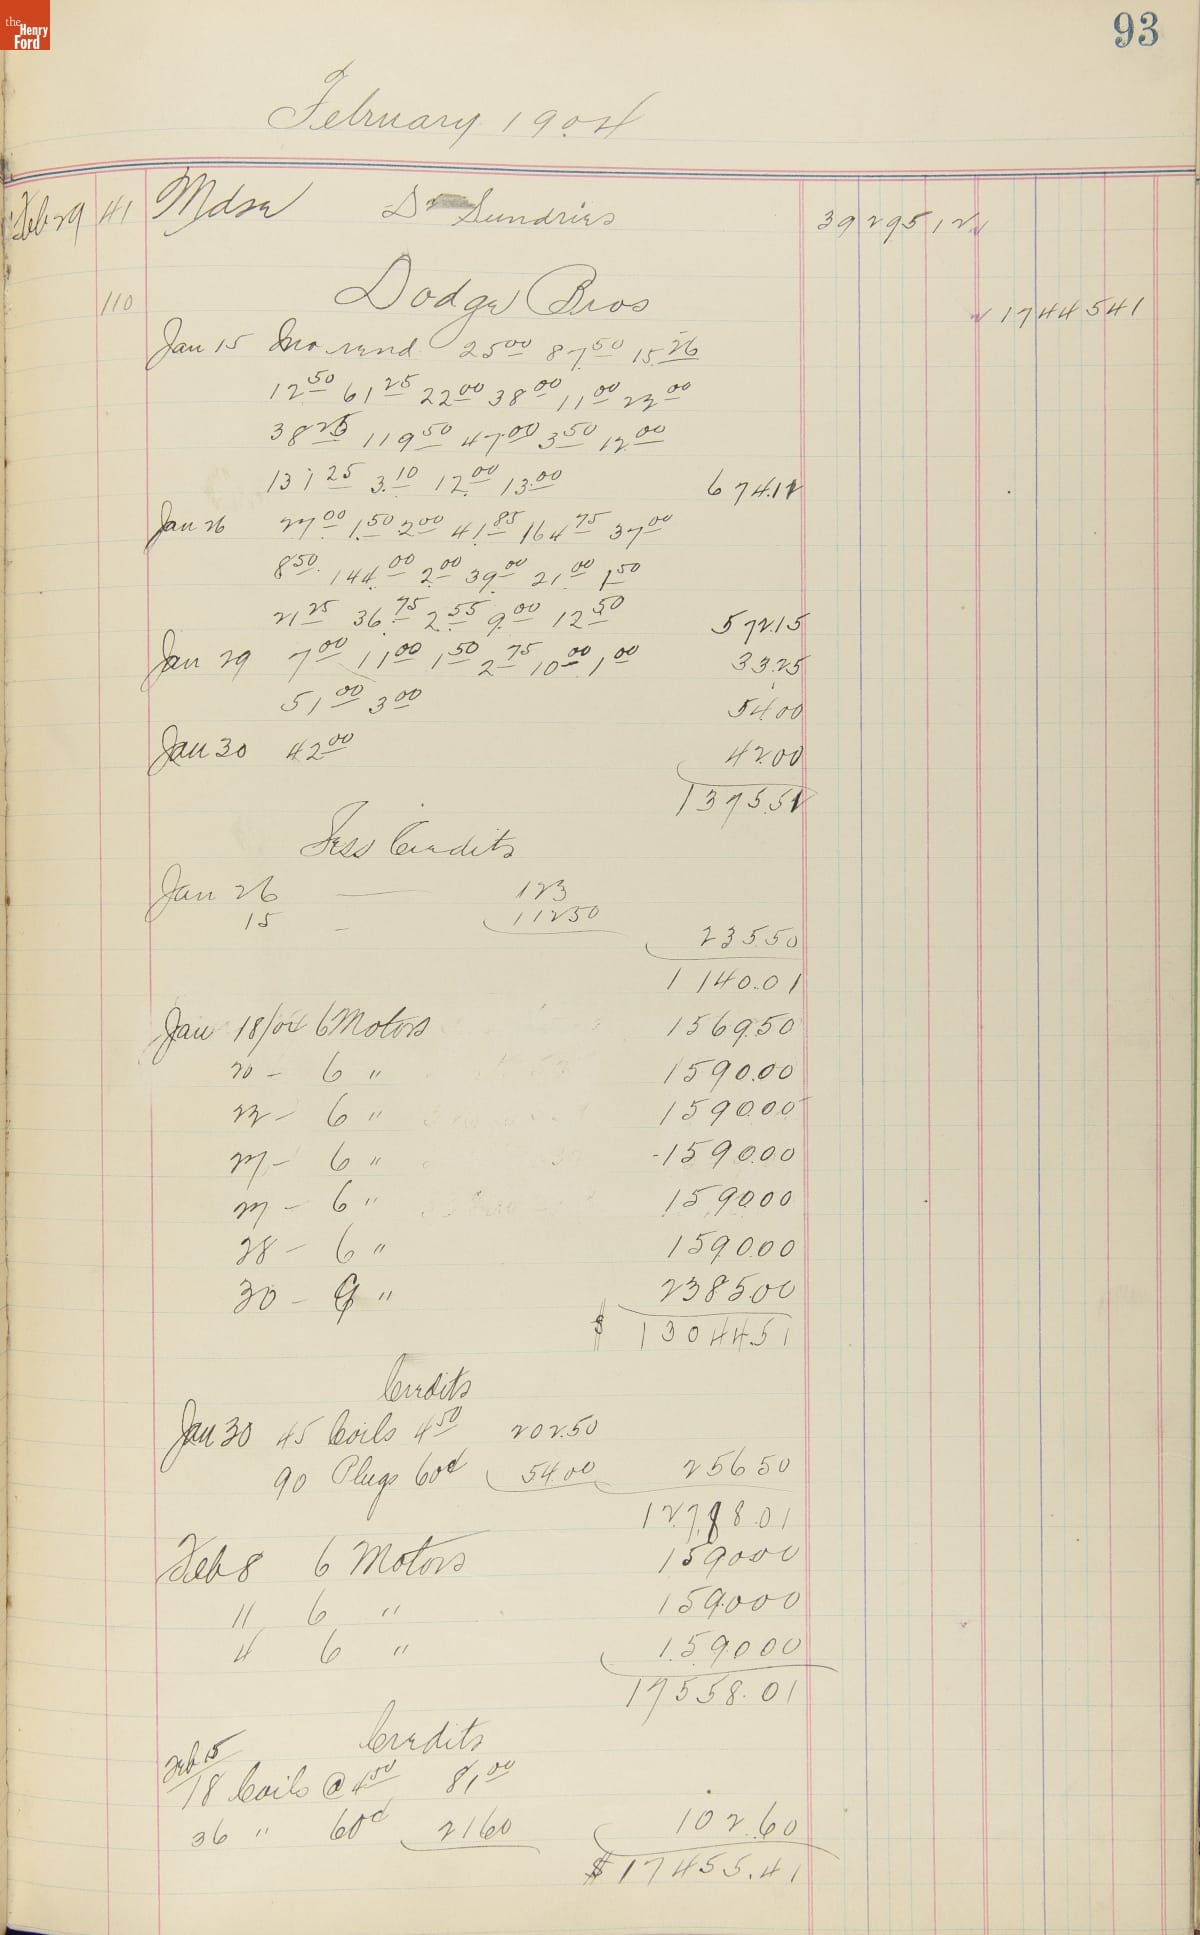 the Henry Ford
93
February 1904
Feb 29 41 Mdse Dr Sundries 39295 12
110 Dodge Bros 17445 41
Jan 15 Inv rend 25 00 87 50 15 26
12 50 61 25 22 00 38 00 11 00 22 00
38 25 119 50 47 00 3 50 12 00
131 25 3.10 12 00 13 00 674.12
Jan 26 27 00 1 50 2 00 41 85 164 75 37 00
8 50 144 00 2 00 39 00 21 00 1 50
21 25 36 75 2 55 9 00 12 50 572.15
Jan 29 7 00 11 00 1 50 2 75 10 00 1 00 33.25
51 00 3 00 54 00
Jan 30 42 00 42.00
1375.52
Less Credits
Jan 26 — 123
15 – 112 50 235 50
1140.01
Jan 18/04 6 Motors 1569.50
20 – 6 " 1590.00
22 – 6 " 1590.00
27 – 6 " 1590.00
27 – 6 " 1590.00
28 – 6 " 1590.00
30 – 9 " 2385.00
$ 13044 51
Credits
Jan 30 45 Coils 4 50 202.50
90 Plugs 60¢ 54.00 256 50
12788.01
Feb 8 6 Motors 1590.00
11 6 " 1590.00
4 6 " 1590.00
17558.01
Credits
Feb 15
18 Coils @ 4 50 81 00
36 " 60¢ 21 60 102.60
$ 17455.41